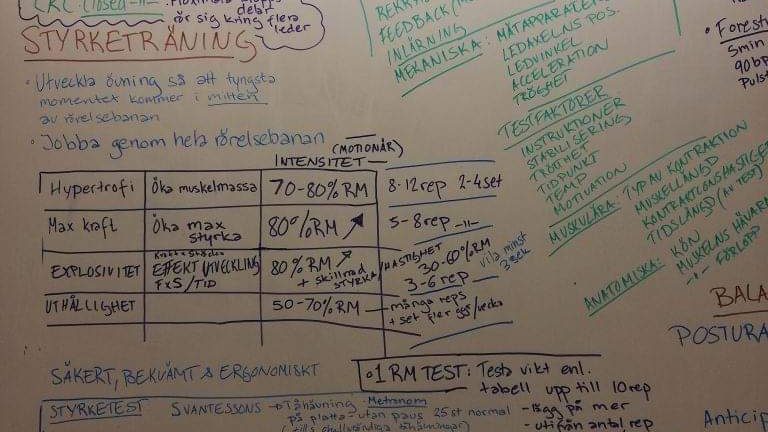 CKC: closed -11-
delar
rör sig kring flera
leder
STYRKETRÄNING
• Utveckla övning så att tyngsta
momentet kommer i mitten
av rörelsebanan
• Jobba genom hela rörelsebanan
(MOTIONÄR)
INTENSITET
Hypertrofi Öka muskelmassa 70-80% RM 8-12 rep 2-4 set
Max kraft Öka max styrka 80% RM ↗ 5-8 rep -11-
EXPLOSIVITET EFFEKT UTVECKLING FxS/TID 80% RM ↗ + skillnad STYRKA/HASTIGHET 30-60% RM 3-6 rep vila minst
UTHÅLLIGHET 50-70% RM många reps
+ set fler ggr/vecka
SÄKERT, BEKVÄMT & ERGONOMISKT
• 1 RM TEST: Testa vikt enl.
tabell upp till 10 rep
- lägg på mer
- utifrån antal rep
STYRKETEST SVANTESSONS → Tåhävning Metronom
på platta - utan paus 25 st normal
FEEDBACK
INLÄRNING
MEKANISKA: MÄTAPPARATEN
LEDAXELNS POS.
LEDVINKEL
ACCELERATION
TRÖGHET
TESTFAKTORER:
INSTRUKTIONER
STABILISERING
TRÖTTHET
TIDPUNKT
TEMP
MOTIVATION
MUSKULÄRA: TYP AV KONTRAKTION
MUSKELLÄNGD
KONTRAKTIONSHASTIGHET
TIDSLÄNGD (AV TEST)
ANATOMISKA: KÖN
MUSKELNS HÄVARM
-11- FÖRLOPP
• Forest
5min
90 bp
Puls
BALA
POSTURA
Anticip